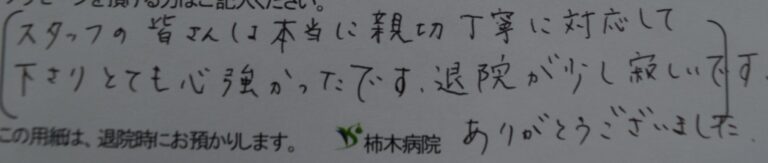 メッセージを頂ける方はご記入ください。
スタッフの皆さんは本当に親切丁寧に対応して
下さりとても心強かったです。退院が少し寂しいです。
ありがとうございました。
この用紙は、退院時にお預かりします。 柿木病院